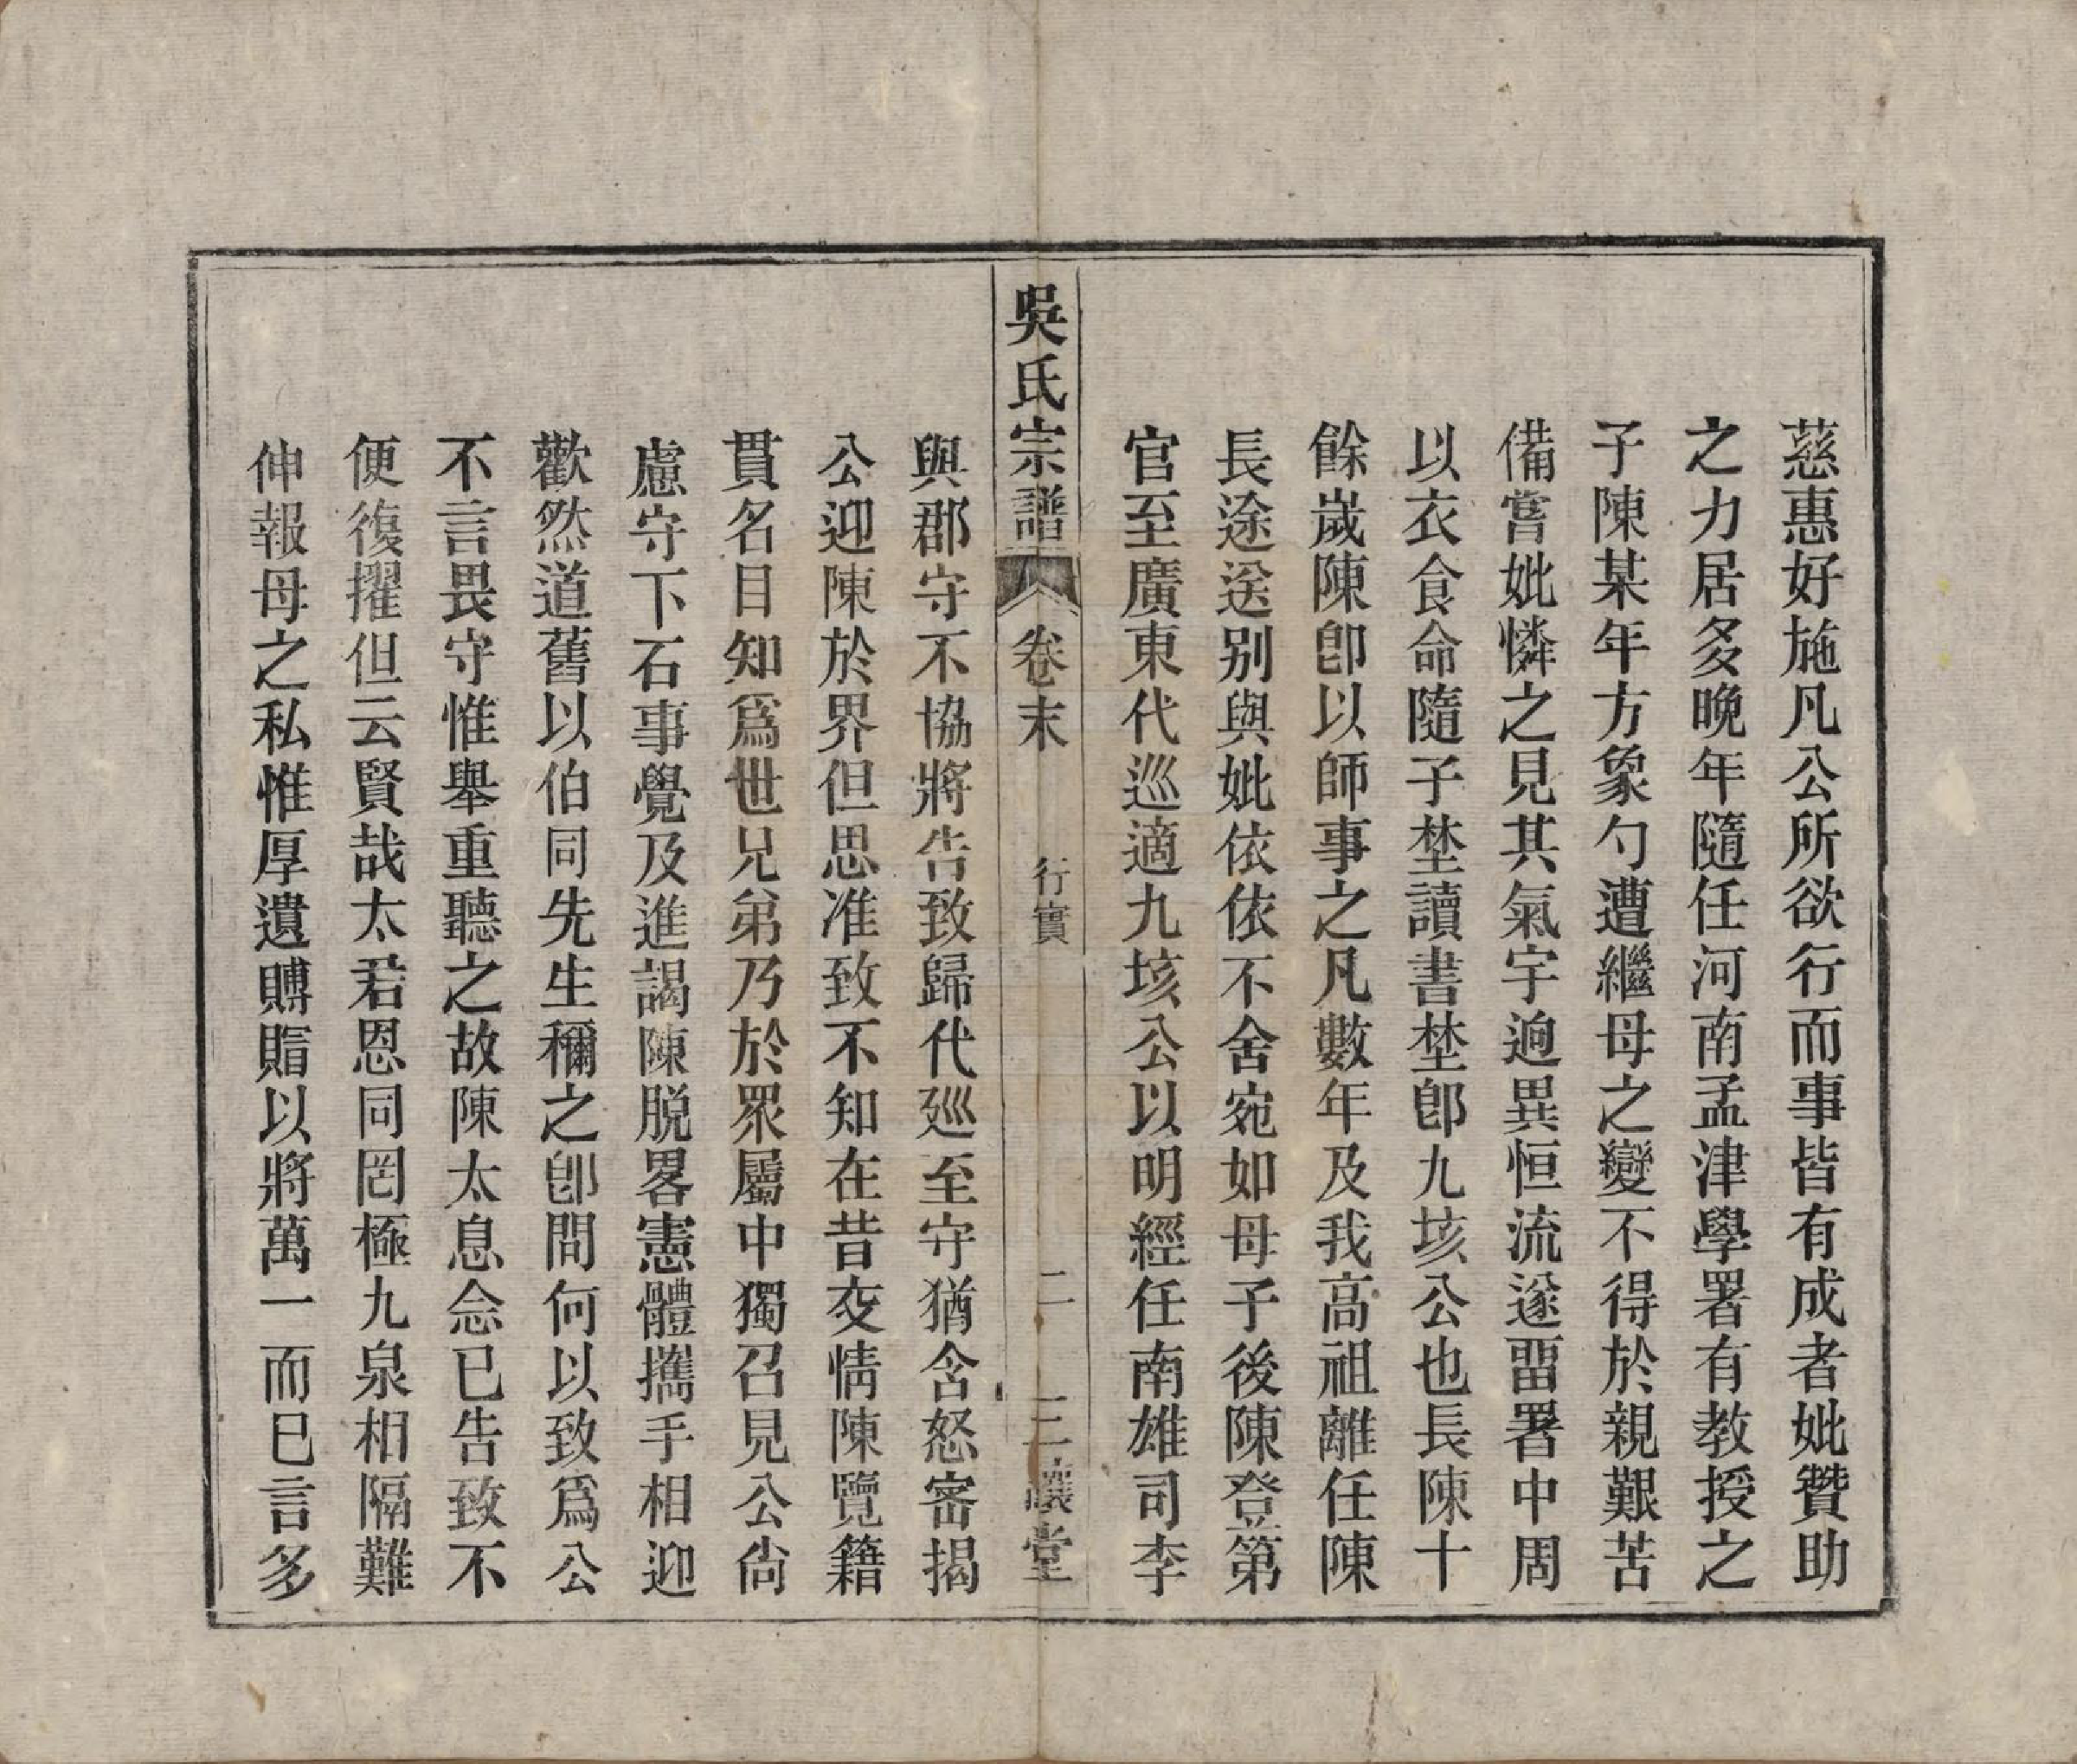 慈惠好施凡公所欲行而事皆有成者妣贊助
之力居多晚年隨任河南孟津學署有教授之
子陳某年方象勺遭繼母之變不得於親艱苦
備嘗妣憐之見其氣宇逈異恒流遂畱署中周
以衣食命隨子埜讀書埜卽九垓公也長陳十
餘嵗陳卽以師事之凡數年及我高祖離任陳
長途送别與妣依依不舍宛如母子後陳登第
官至廣東代巡適九垓公以明經任南雄司李
吳氏宗譜 卷末 行實 二 三讓堂
與郡守不協將告致歸代廵至守猶含怒密揭
公迎陳於界但思准致不知在昔交情陳覽籍
貫名目知爲世兄弟乃於眾屬中獨召見公尙
慮守下石事覺及進謁陳脱畧憲體攜手相迎
歡然道舊以伯同先生稱之卽問何以致爲公
不言畏守惟舉重聽之故陳太息念已告致不
便復擢但云賢哉太君恩同罔極九泉相隔難
伸報母之私惟厚遺賻賵以將萬一而已言多